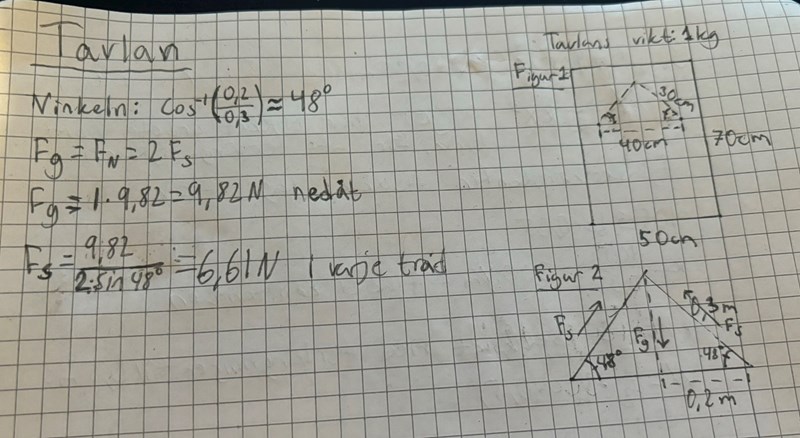 Tavlan
Vinkeln: cos⁻¹(0,2/0,3) ≈ 48°
Fg = FN = 2 Fs
Fg = 1 · 9,82 = 9,82 N nedåt
Fs = 9,82/2·sin 48° = 6,61 N i varje tråd
Tavlans vikt: 1kg
Figur 1
30cm
40cm
70cm
50cm
Figur 2
0,3 m
Fs
Fs
Fg
48°
48°
0,2 m